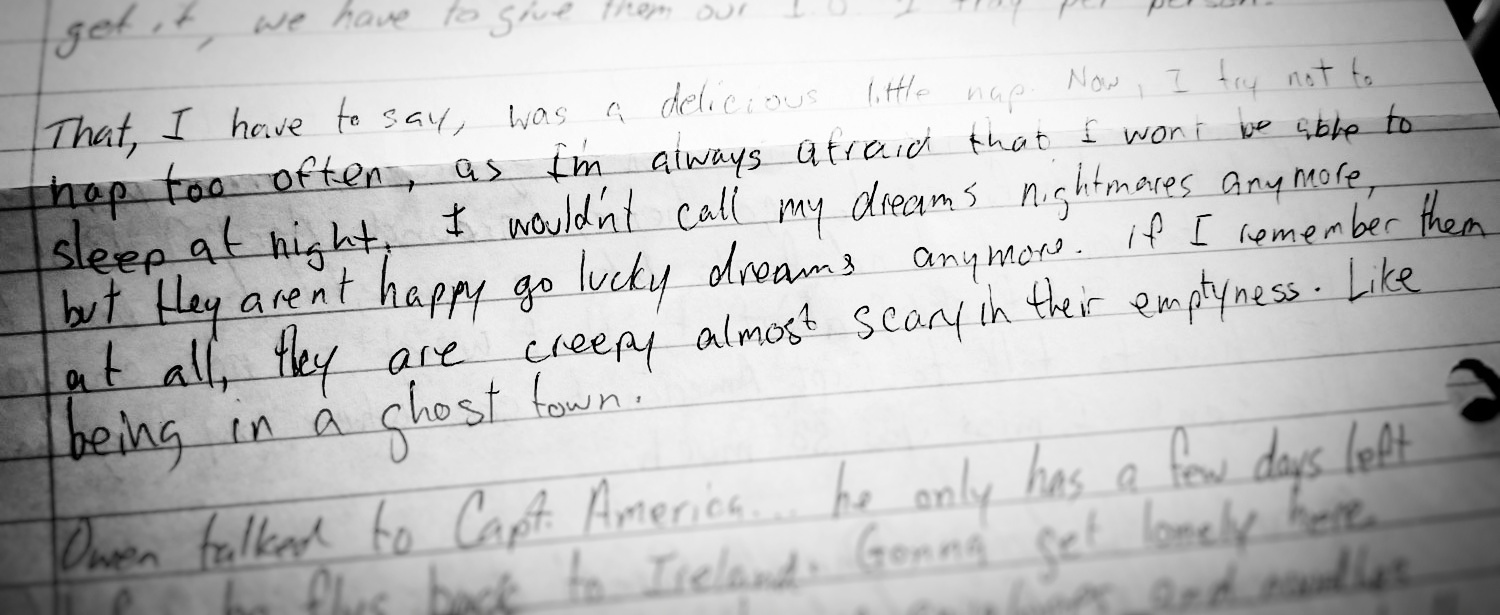 get it, we have to give them our I.D. 1 tray per person.
That, I have to say, was a delicious little nap. Now, I try not to
nap too often, as I'm always afraid that I wont be able to
sleep at night. I would'nt call my dreams nightmares anymore,
but they arent happy go lucky dreams anymore. if I remember them
at all, they are creepy almost scary in their emptyness. Like
being in a ghost town.
Owen talked to Capt. America... he only has a few days left
he flys back to Ireland. Gonna get lonely here.
and noodles